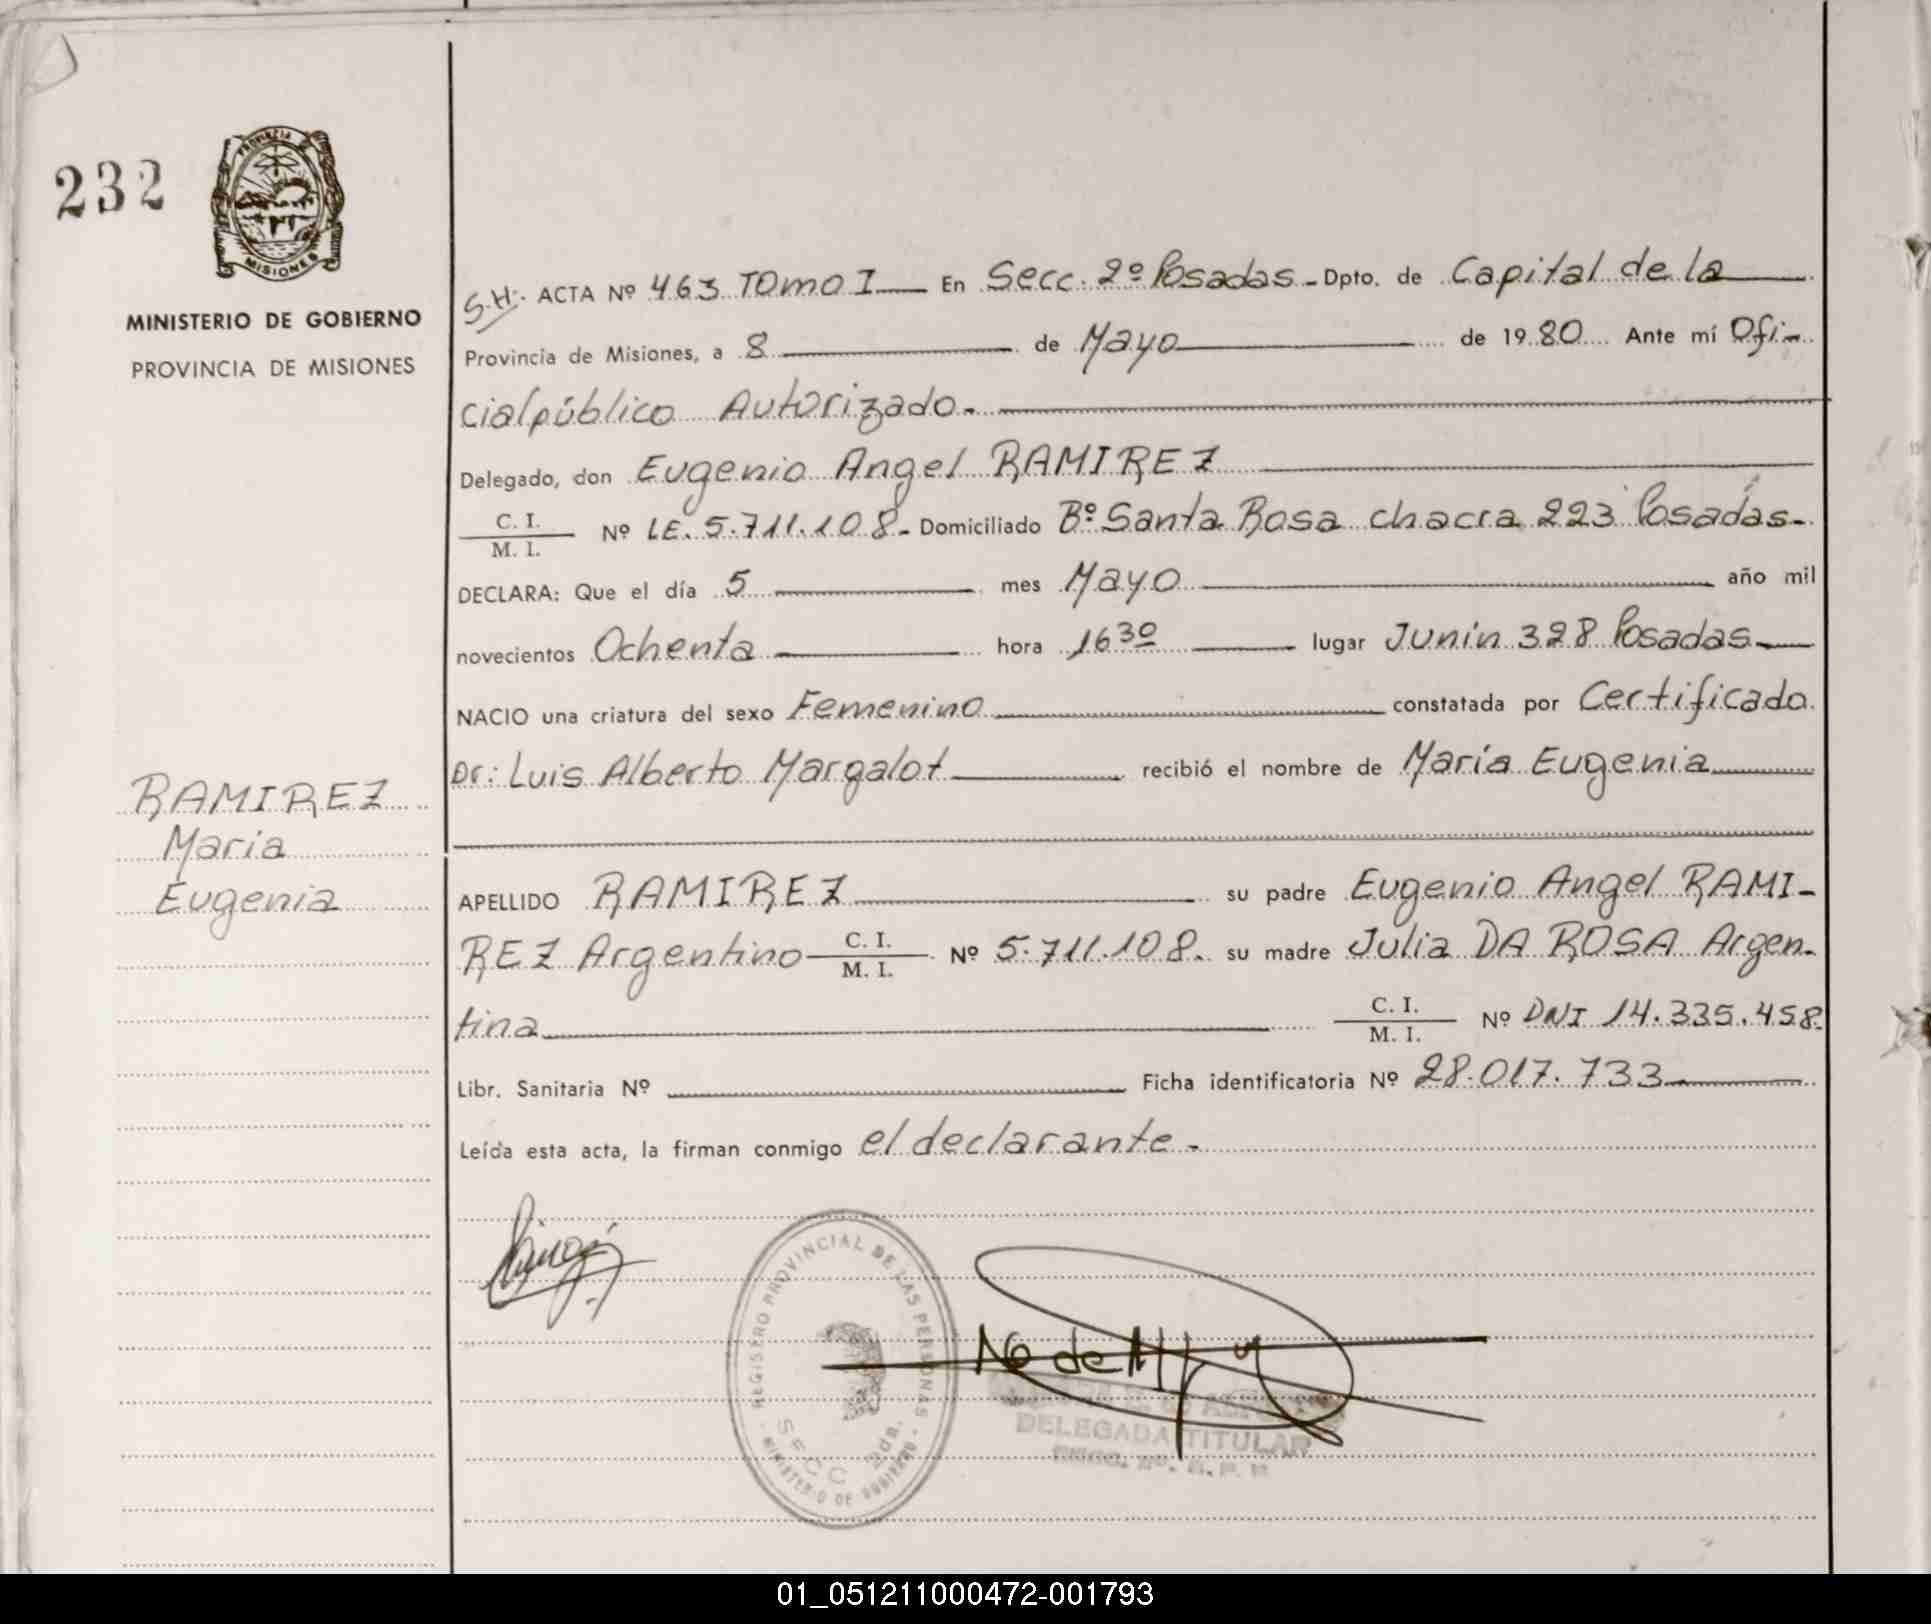 232
PROVINCIA
MISIONES
MINISTERIO DE GOBIERNO
PROVINCIA DE MISIONES
S.H. ACTA Nº 463 Tomo I En Secc. 2º Posadas - Dpto. de Capital de la
Provincia de Misiones, a 8 de Mayo de 1980 Ante mí Ofi-
cial público Autorizado.
Delegado, don Eugenio Angel RAMIREZ
C. I. / M. I. Nº LE. 5.711.108 - Domiciliado Bº Santa Rosa chacra 223 Posadas-
DECLARA: Que el día 5 mes Mayo año mil
novecientos Ochenta hora 16 30 lugar Junin 328 Posadas
NACIO una criatura del sexo Femenino constatada por Certificado
Dr: Luis Alberto Margalot recibió el nombre de María Eugenia
RAMIREZ
Maria
Eugenia
APELLIDO RAMIREZ su padre Eugenio Angel RAMI-
REZ Argentino C. I. / M. I. Nº 5.711.108. su madre Julia DA ROSA Argen-
tina C. I. / M. I. Nº DNI 14.335.458.
Libr. Sanitaria Nº Ficha identificatoria Nº 28.017.733
Leída esta acta, la firman conmigo el declarante -
REGISTRO PROVINCIAL DE LAS PERSONAS
SECC 2da.
MINISTERIO DE GOBIERNO
DELEGADA TITULAR
01_051211000472-001793